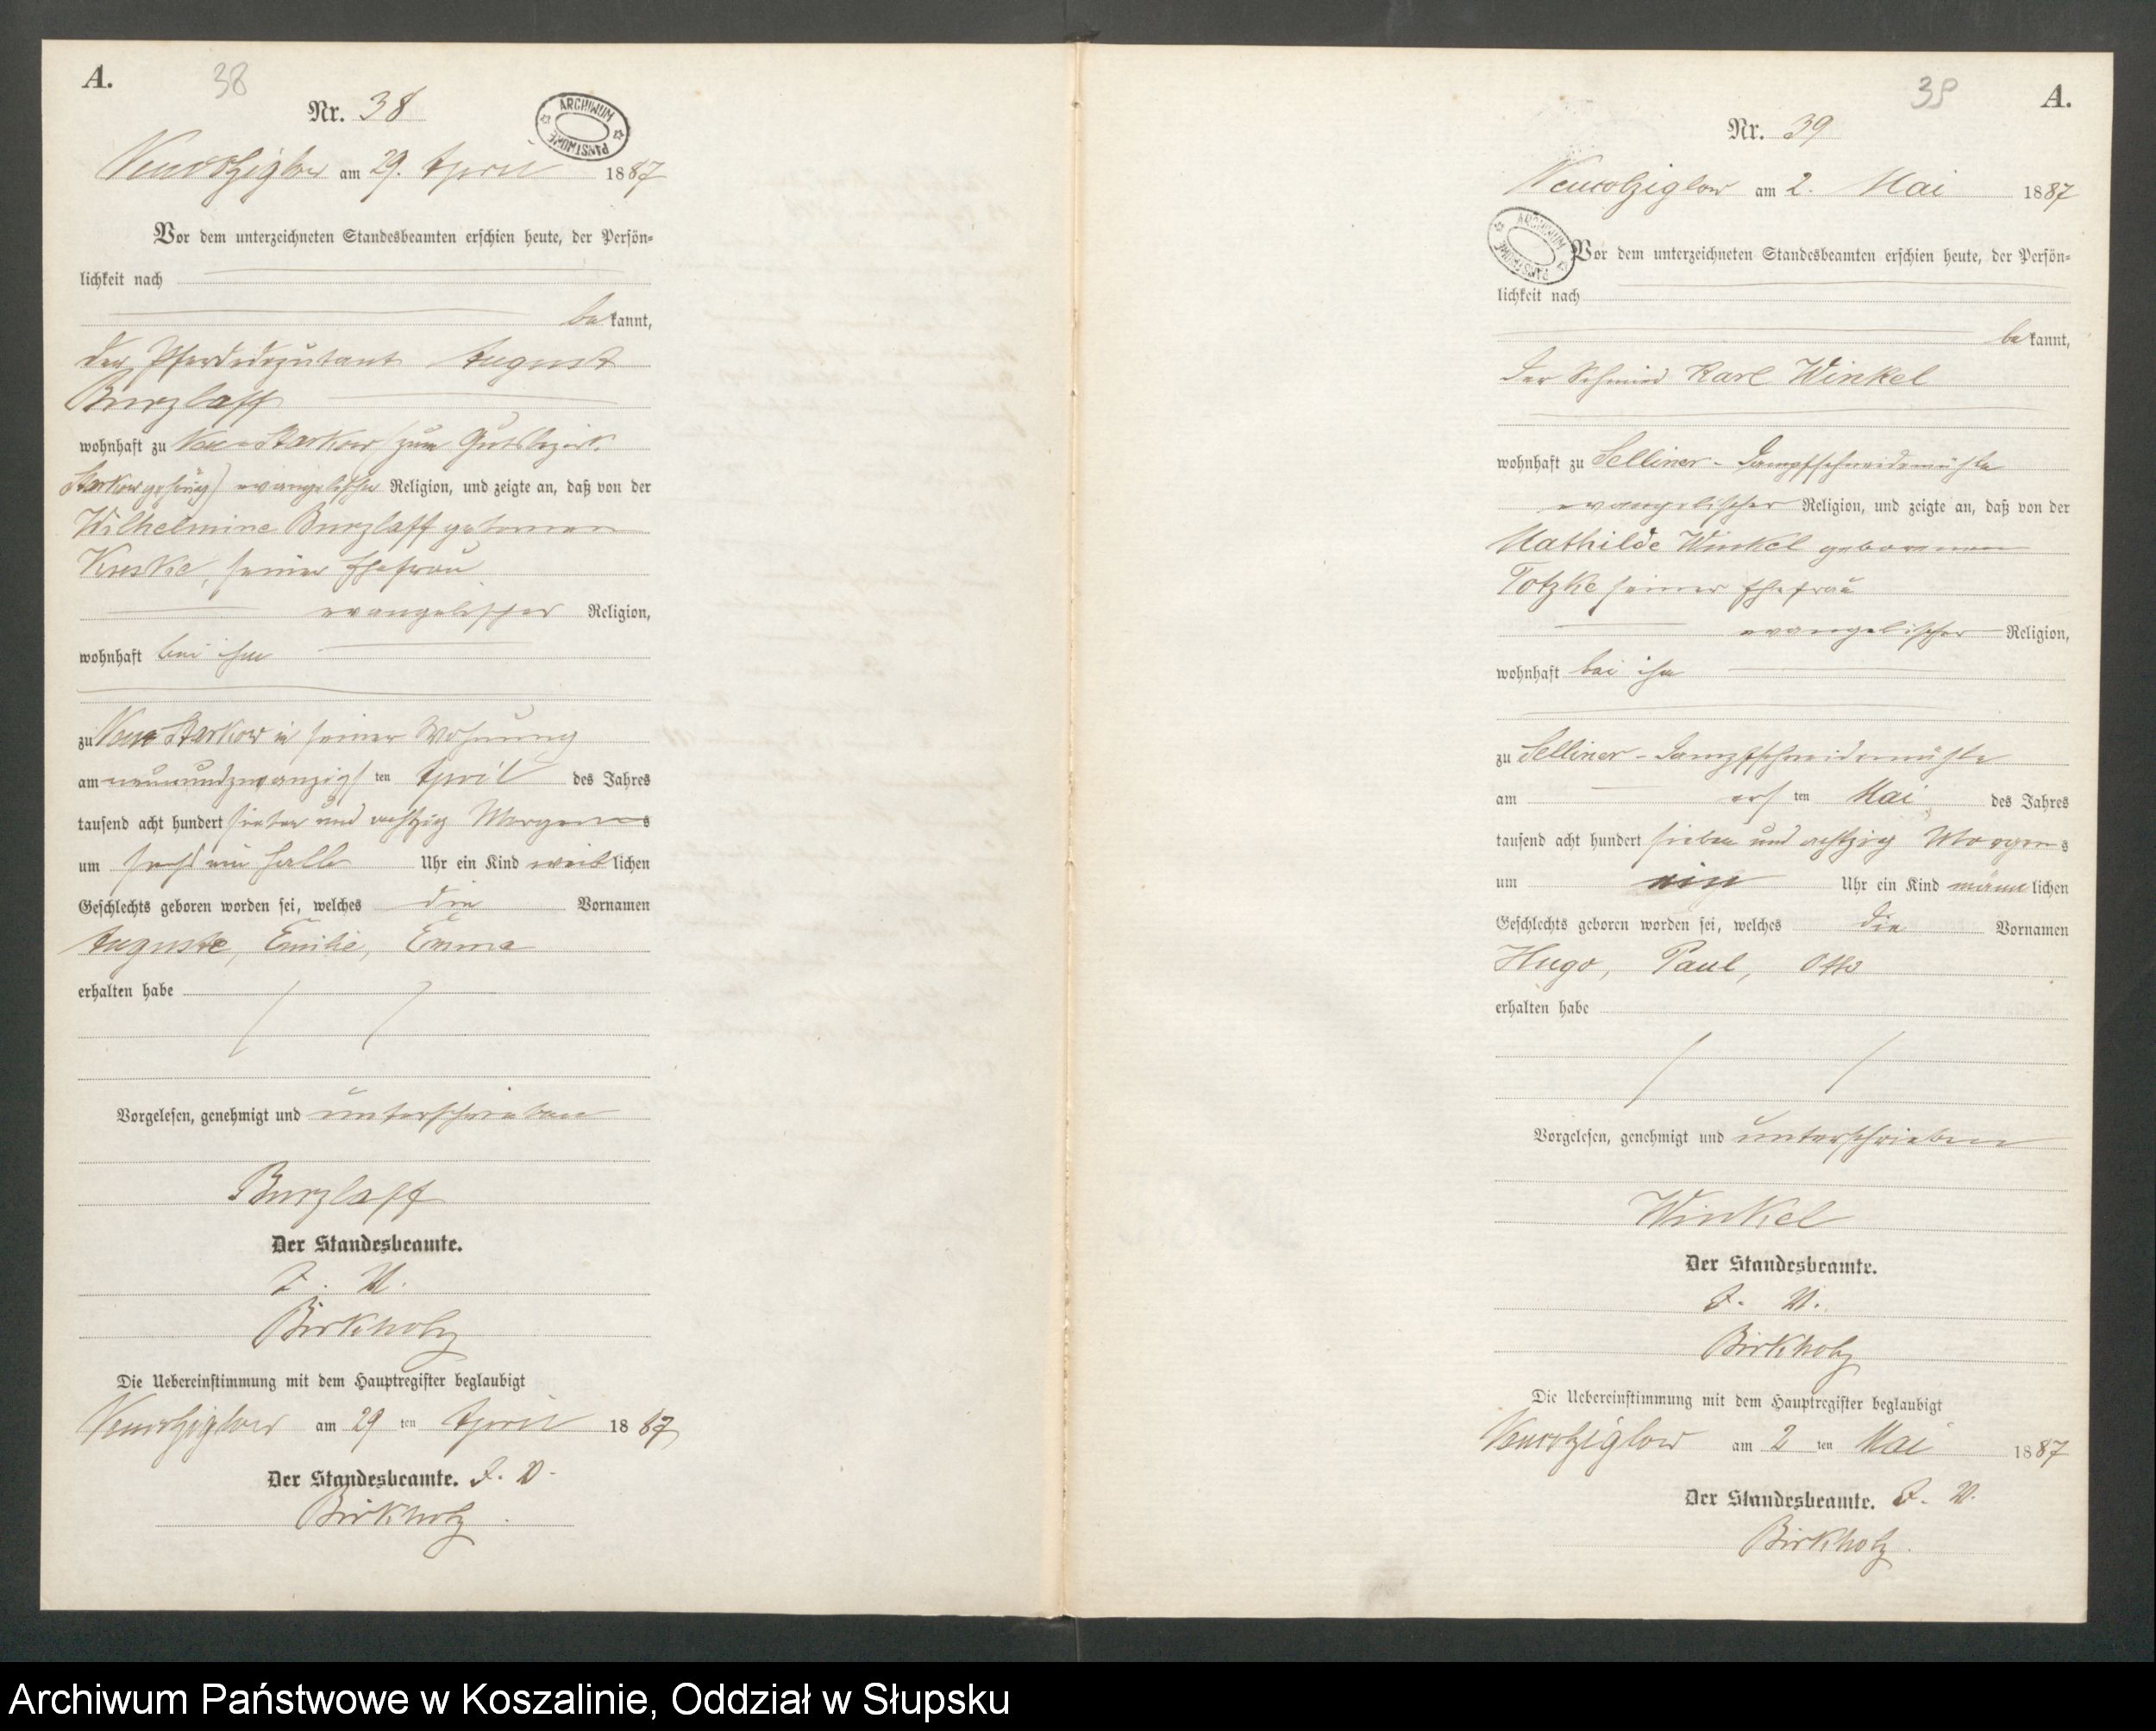 A.
38
Nr. 38
ARCHIWUM PAŃSTWOWE
Neukolziglow am 29. April 1887
Vor dem unterzeichneten Standesbeamten erschien heute, der Persön=
lichkeit nach
bekannt,
der Pferdedeputant August
Burzlaff
wohnhaft zu Neu-Starkow (zum Gutsbezirk
Starkow gehörig) evangelischer Religion, und zeigte an, daß von der
Wilhelmine Burzlaff geborenen
seiner Ehefrau
evangelischer Religion,
wohnhaft bei ihm
zu Neu Starkow in seiner Wohnung
am neunundzwanzigsten April des Jahres
tausend acht hundert sieben und achtzig Morgens
um sechs ein halb Uhr ein Kind weiblichen
Geschlechts geboren worden sei, welches die Vornamen
Auguste, Emilie, Emma
erhalten habe
Vorgelesen, genehmigt und unterschrieben
Burzlaff
Der Standesbeamte.
J. V.
Birkholz
Die Uebereinstimmung mit dem Hauptregister beglaubigt
Neukolziglow am 29 ten April 1887
Der Standesbeamte. J. V.
Birkholz.
39
A.
Nr. 39
Neukolziglow am 2. Mai 1887
ARCHIWUM PAŃSTWOWE
Vor dem unterzeichneten Standesbeamten erschien heute, der Persön=
lichkeit nach
bekannt,
der Schmied Karl Winkel
wohnhaft zu Selliner-Dampfschneidemühle
evangelischer Religion, und zeigte an, daß von der
Mathilde Winkel geborenen
Totzke seiner Ehefrau
evangelischer Religion,
wohnhaft bei ihm
zu Selliner-Dampfschneidemühle
am ersten Mai des Jahres
tausend acht hundert sieben und achtzig Morgens
um ein Uhr ein Kind männlichen
Geschlechts geboren worden sei, welches die Vornamen
Hugo, Paul, Otto
erhalten habe
Vorgelesen, genehmigt und unterschrieben
Winkel
Der Standesbeamte.
J. V.
Birkholz
Die Uebereinstimmung mit dem Hauptregister beglaubigt
Neukolziglow am 2 ten Mai 1887
Der Standesbeamte. J. V.
Birkholz.
Archiwum Państwowe w Koszalinie, Oddział w Słupsku